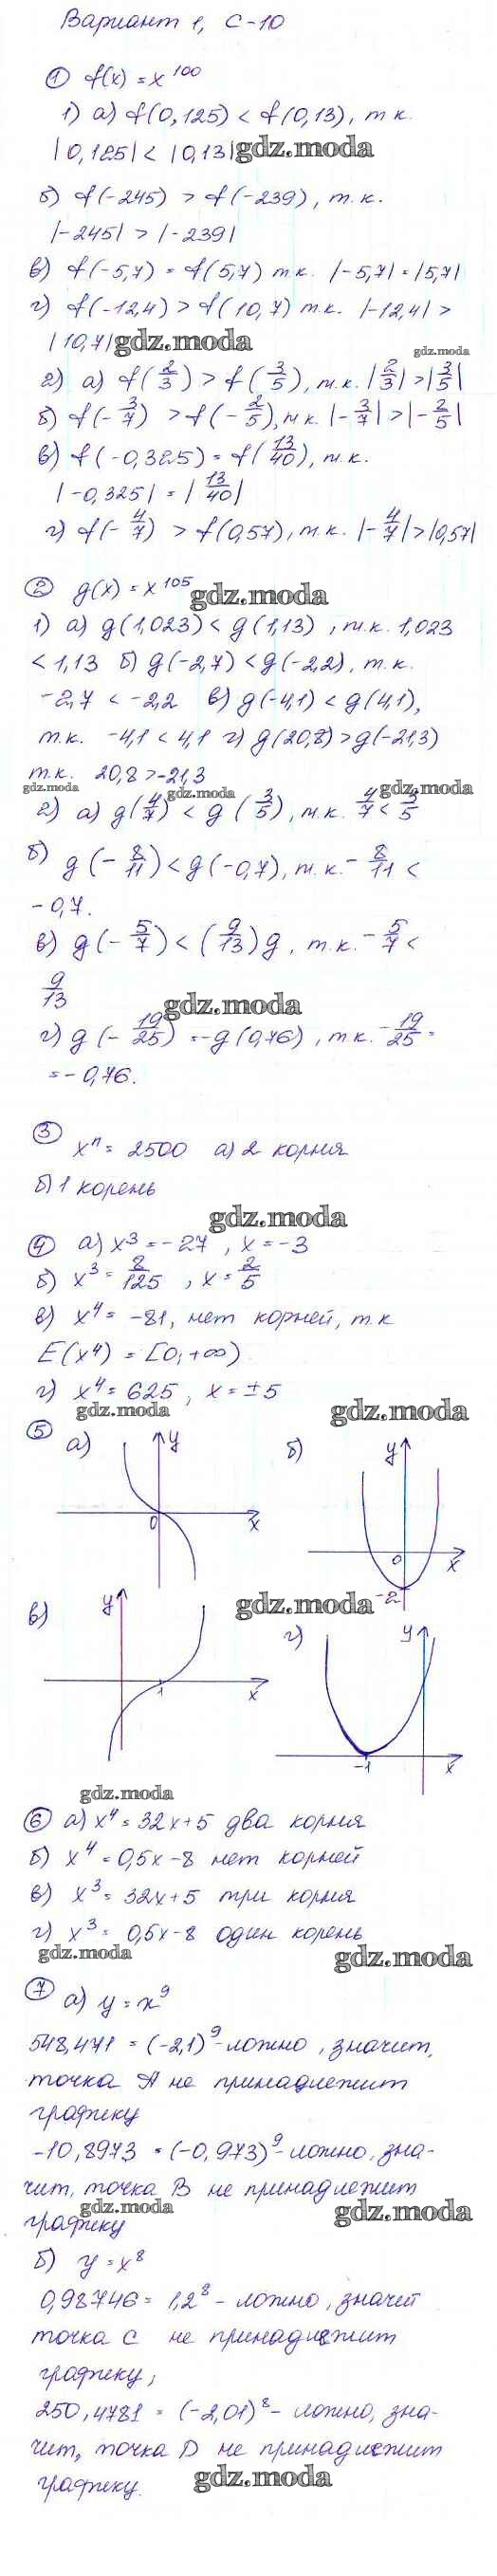 Вариант 1, С-10
① f(x) = x^100
1) а) f(0,125) < f(0,13), т.к.
|0,125| < |0,13| gdz.moda
б) f(-245) > f(-239), т.к.
|-245| > |-239|
в) f(-5,7) = f(5,7) т.к. |-5,7| = |5,7|
г) f(-12,4) > f(10,7) т.к. |-12,4| >
|10,7| gdz.moda
gdz.moda
2) а) f(2/3) > f(3/5), т.к. |2/3| > |3/5|
б) f(-3/7) > f(-2/5), т.к. |-3/7| > |-2/5|
в) f(-0,325) = f(13/40), т.к.
|-0,325| = |13/40|
г) f(-4/7) > f(0,57), т.к. |-4/7| > |0,57|
② g(x) = x^105 gdz.moda
1) а) g(1,023) < g(1,13), т.к. 1,023
< 1,13 б) g(-2,7) < g(-2,2), т.к.
-2,7 < -2,2 в) g(-4,1) < g(4,1),
т.к. -4,1 < 4,1 г) g(20,8) > g(-21,3)
т.к. 20,8 > -21,3
gdz.moda gdz.moda gdz.moda
2) а) g(4/7) < g(3/5), т.к. 4/7 < 3/5
б) g(-8/11) < g(-0,7), т.к. -8/11 <
-0,7.
в) g(-5/7) < (9/13)g, т.к. -5/7 <
9/13 gdz.moda
г) g(-19/25) = -g(0,76), т.к. -19/25 =
= -0,76.
③
x^n = 2500 а) 2 корня
б) 1 корень
gdz.moda
④ а) x³ = -27, x = -3
б) x³ = 8/125, x = 2/5
в) x⁴ = -81, нет корней, т.к
E(x⁴) = [0; +∞)
г) x⁴ = 625, x = ±5
gdz.moda gdz.moda
⑤ а) y 0 x
б) y 0 x -2
gdz.moda
в) y 1 x
г) y -1 x
gdz.moda
⑥ а) x⁴ = 32x+5 два корня
б) x⁴ = 0,5x-8 нет корней
в) x³ = 32x+5 три корня
г) x³ = 0,5x-8 один корень
gdz.moda gdz.moda
⑦ а) y = x⁹
548,471 = (-2,1)⁹ - ложно, значит,
точка A не принадлежит
графику
-10,8973 = (-0,973)⁹ - ложно, зна-
чит, точка B не принадлежит
gdz.moda gdz.moda
графику
б) y = x⁸
0,98746 = 1,2⁸ - ложно, значит
точка C не принадлежит
графику;
250,4781 = (-2,01)⁸ - ложно, зна-
чит, точка D не принадлежит
графику. gdz.moda